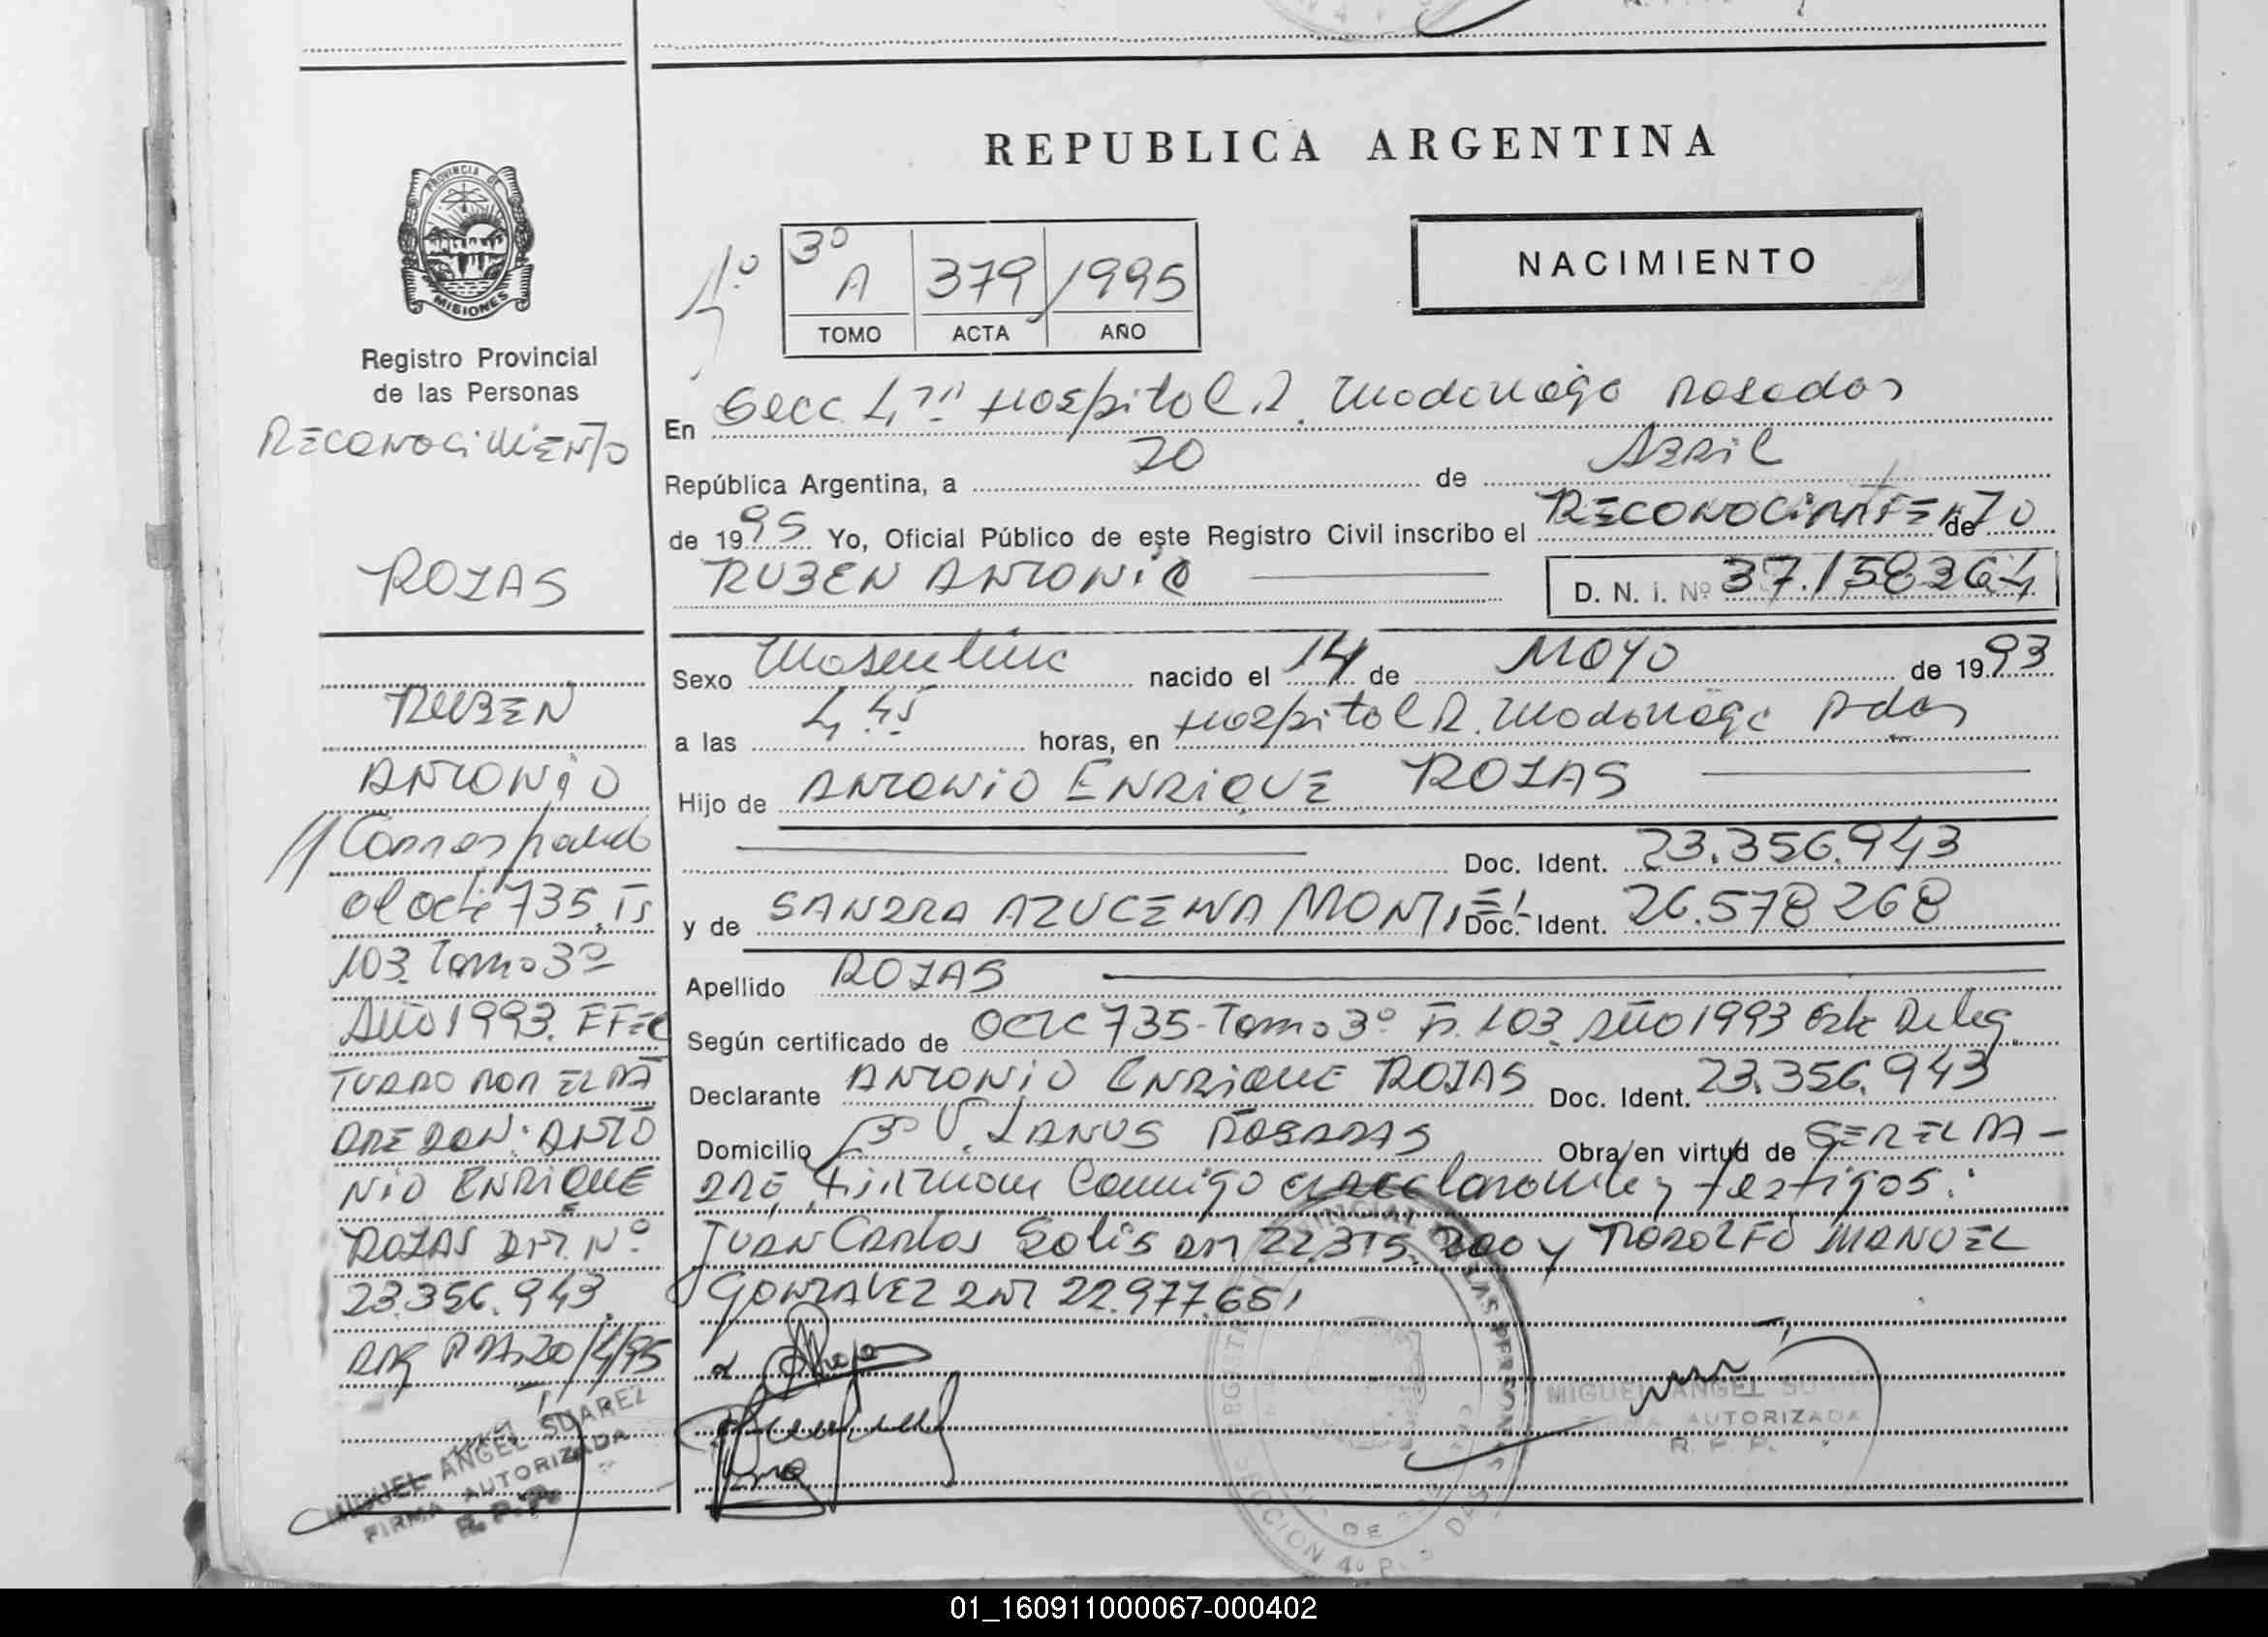 PROVINCIA DE
MISIONES
Registro Provincial
de las Personas
RECONOCIMIENTO
ROJAS
RUBEN
ANTONIO
Correspond
al acta 735 Fs
103 Tomo 3º
Año 1993. EFEC
TUADO POR EL PA
DRE DON: ANTO
NIO ENRIQUE
ROJAS DNI. Nº
23.356.943.
20/4/95
MIGUEL ANGEL SUAREZ
FIRMA AUTORIZADA
R. P. P.
REPUBLICA ARGENTINA
NACIMIENTO
3º
A 379 1995
TOMO ACTA AÑO
En Secc 4ta Hospital R. Madariaga Posadas
República Argentina, a 20 de ABRIL
de 1995 Yo, Oficial Público de este Registro Civil inscribo el RECONOCIMIENTO de
RUBEN ANTONIO D. N. i. Nº 37.158264
Sexo Masculino nacido el 14 de MAYO de 1993
a las 4,45 horas, en Hospital R. Madariaga Pdas
Hijo de ANTONIO ENRIQUE ROJAS
Doc. Ident. 23.356.943
y de SANDRA AZUCENA MONTIEL Doc. Ident. 26.578268
Apellido ROJAS
Según certificado de Acta 735-Tomo 3º Fs. 103 Año 1993 Esta Deleg.
Declarante ANTONIO ENRIQUE ROJAS Doc. Ident. 23.356.943
Domicilio Bº V. LANUS POSADAS Obra en virtud de SER EL PA-
DRE, Firman Conmigo el declarante y testigos:
JUAN Carlos Solis DNI 22.315.200 y RODOLFO MANUEL
GONZALEZ DNI 22.977.651
MIGUEL ANGEL SU
AUTORIZADA
R. P. P.
01_160911000067-000402